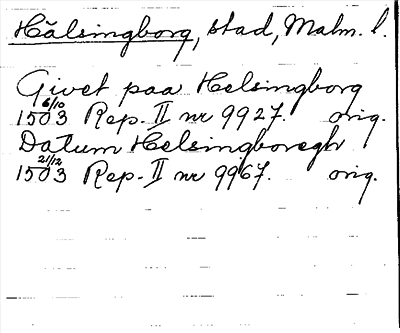 Hälsingborg, stad, Malm. l.
Givet paa Helsingborg
1503 6/10 Rep. II nr 9927. orig.
Datum Helsingboregh
1503 21/12 Rep. II nr 9967. orig.